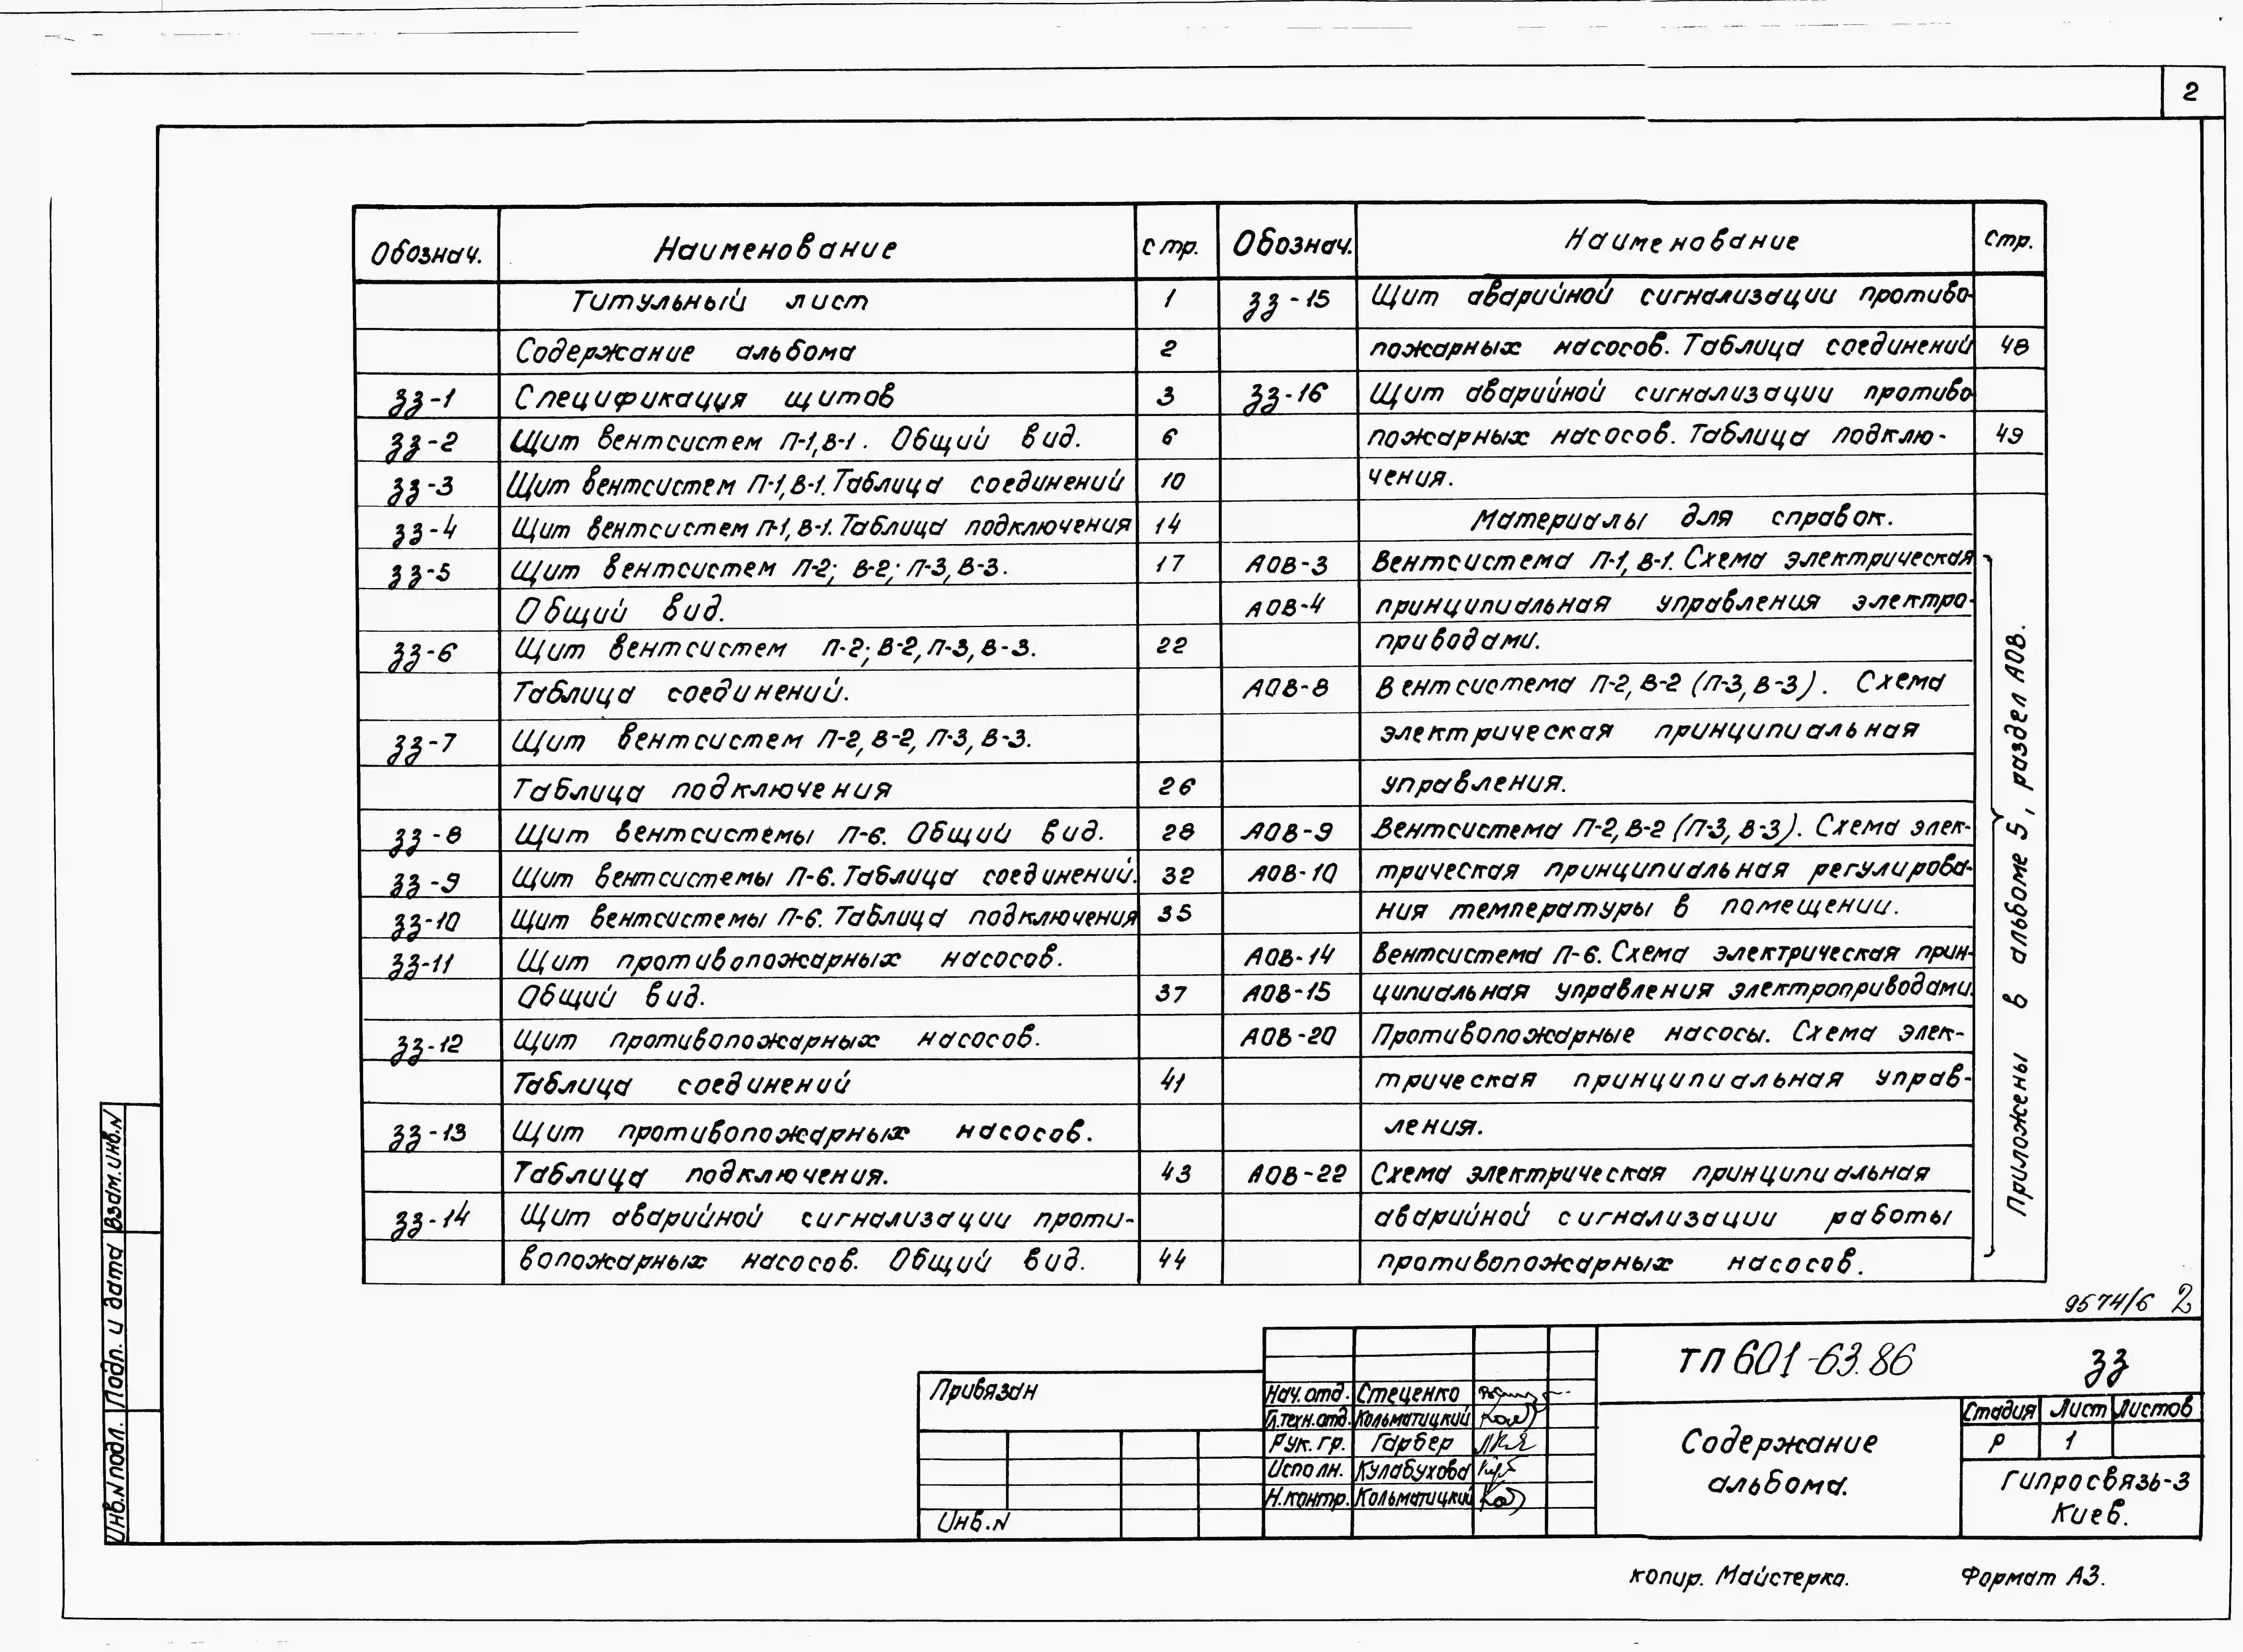 2
Обознач. Наименование стр.
Титульный лист 1
Содержание альбома 2
ЗЗ-1 Спецификация щитов 3
ЗЗ-2 Щит вентсистем П-1,В-1. Общий вид. 6
ЗЗ-3 Щит вентсистем П-1,В-1. Таблица соединений 10
ЗЗ-4 Щит вентсистем П-1,В-1. Таблица подключения 14
ЗЗ-5 Щит вентсистем П-2; В-2; П-3, В-3. 17
Общий вид.
ЗЗ-6 Щит вентсистем П-2; В-2, П-3, В-3. 22
Таблица соединений.
ЗЗ-7 Щит вентсистем П-2, В-2, П-3, В-3.
Таблица подключения 26
ЗЗ-8 Щит вентсистемы П-6. Общий вид. 28
ЗЗ-9 Щит вентсистемы П-6. Таблица соединений. 32
ЗЗ-10 Щит вентсистемы П-6. Таблица подключения 35
ЗЗ-11 Щит противопожарных насосов.
Общий вид. 37
ЗЗ-12 Щит противопожарных насосов.
Таблица соединений 41
ЗЗ-13 Щит противопожарных насосов.
Таблица подключения. 43
ЗЗ-14 Щит аварийной сигнализации проти-
вопожарных насосов. Общий вид. 44
Обознач. Наименование Стр.
ЗЗ-15 Щит аварийной сигнализации противо-
пожарных насосов. Таблица соединений 48
ЗЗ-16 Щит аварийной сигнализации противо
пожарных насосов. Таблица подклю- 49
чения.
Материалы для справок.
АОВ-3 Вентсистема П-1, В-1. Схема электрическая
АОВ-4 принципиальная управления электро-
приводами.
АОВ-8 Вентсистема П-2, В-2 (П-3, В-3). Схема
электрическая принципиальная
управления.
АОВ-9 Вентсистема П-2, В-2 (П-3, В-3). Схема элек-
АОВ-10 трическая принципиальная регулирова-
ния температуры в помещении.
АОВ-14 Вентсистема П-6. Схема электрическая прин-
АОВ-15 ципиальная управления электроприводами.
АОВ-20 Противопожарные насосы. Схема элек-
трическая принципиальная управ-
ления.
АОВ-22 Схема электрическая принципиальная
аварийной сигнализации работы
противопожарных насосов.
Приложены в альбоме 5, раздел АОВ.
9574/6 2
Взам.инв.N
Подп. и дата
Инв.N подл.
Привязан
Инв.N
Нач.отд. Стеценко
Гл.техн.отд. Кольматицкий
Рук.гр. Гарбер
Исполн. Кулабухова
Н.контр. Кольматицкий
ТП 601-63.86 ЗЗ
Содержание
альбома.
Стадия Лист Листов
Р 1
Гипросвязь-3
Киев.
копир. Майстерко. Формат А3.